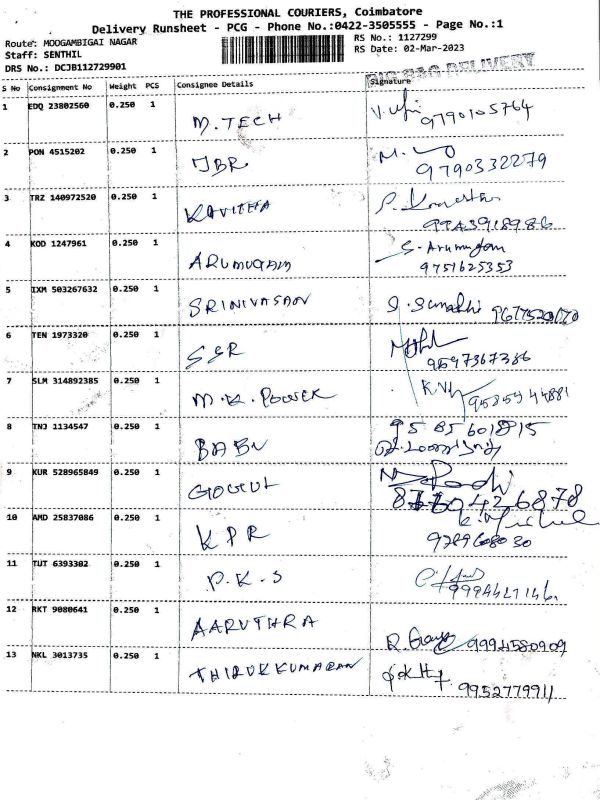 THE PROFESSIONAL COURIERS, Coimbatore
Delivery Runsheet - PCG - Phone No.:0422-3505555 - Page No.:1
Route: MOOGAMBIGAI NAGAR RS No.: 1127299
Staff: SENTHIL RS Date: 02-Mar-2023
DRS No.: DCJB112729901 DELIVERY
S No Consignment No Weight PCS Consignee Details Signature
1 EDQ 23802560 0.250 1 M.TECH 9790105764
2 PON 4515202 0.250 1 JBR 9790332279
3 TRZ 140972520 0.250 1 KAVITHA
9943918986
4 KOD 1247961 0.250 1 ARUMUGAM S. Arumugam
9751625353
5 IXM 503267632 0.250 1 SRINIVASAN
6 TEN 1973320 0.250 1 SSR
9597367386
7 SLM 314892385 0.250 1 M.K. POWER
8 TNJ 1134547 0.250 1 BABU 9585601815
9 KUR 528965849 0.250 1 GOKUL
10 AMD 25837086 0.250 1 KPR
11 TUT 6393302 0.250 1 P.K.S
12 RKT 9080641 0.250 1 AARUTHRA 9994580909
13 NKL 3013735 0.250 1 THIRUKKUMARAN
9952779911